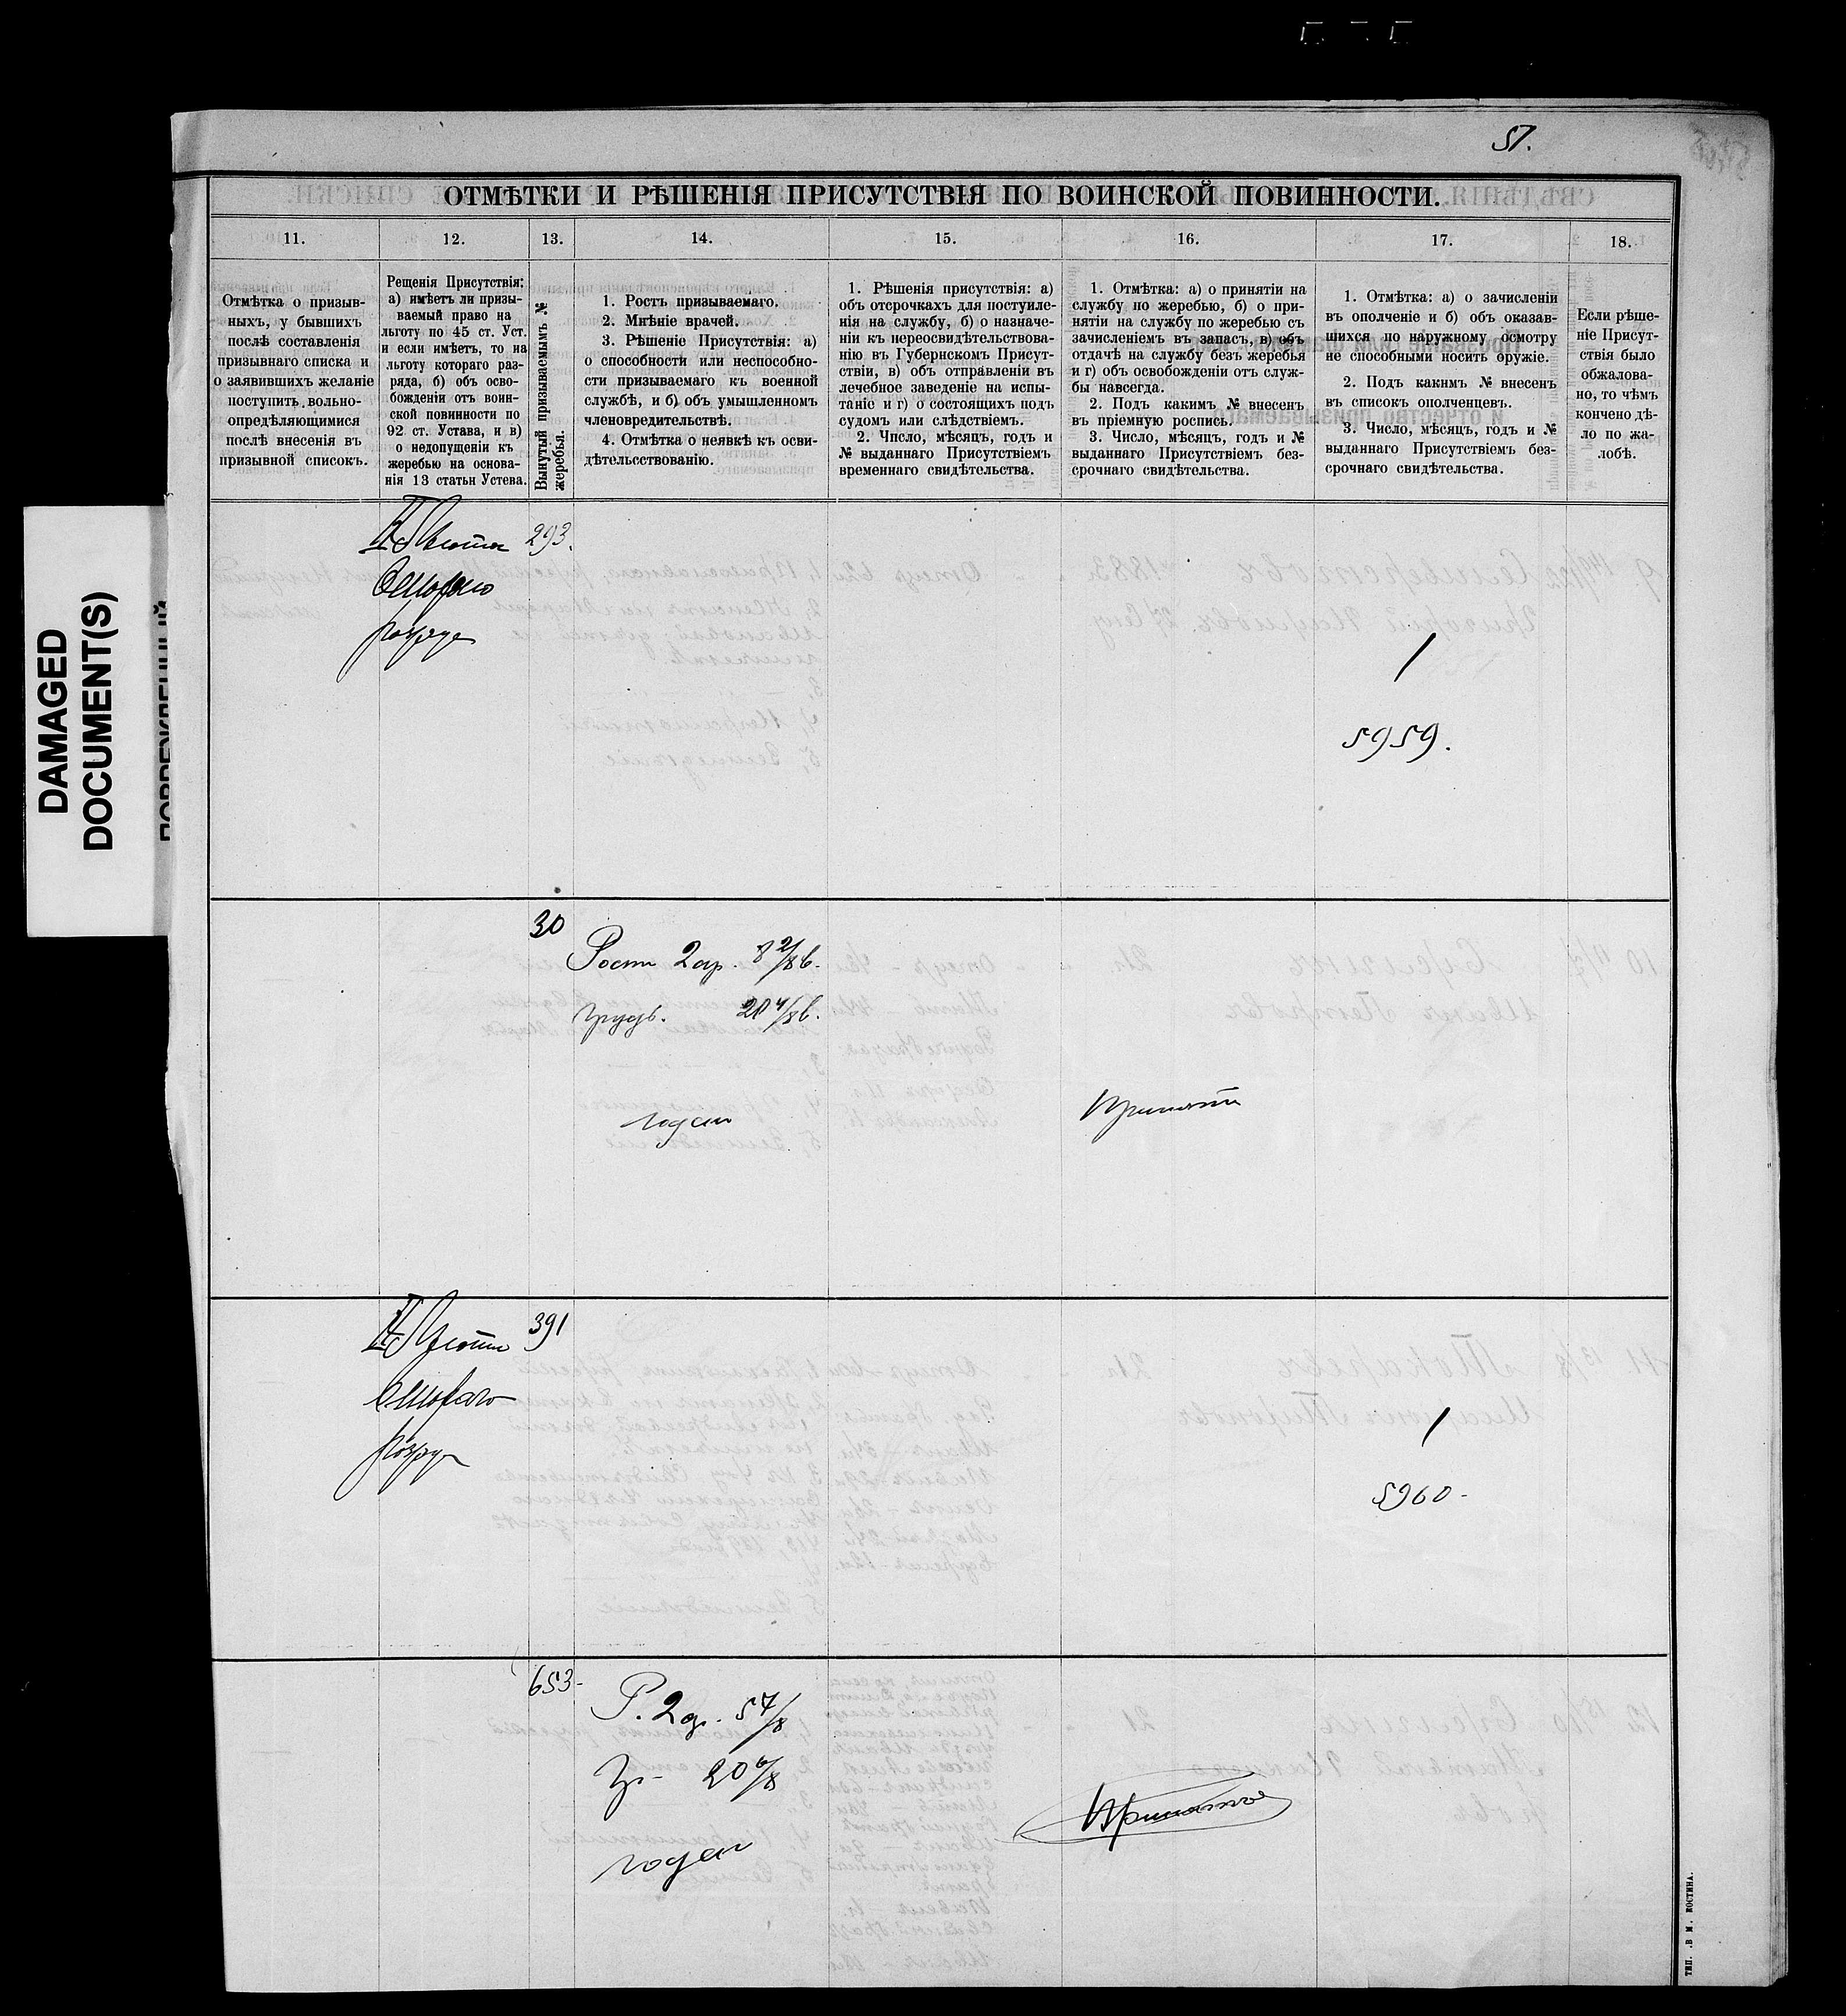 57.
ОТМѢТКИ И РѢШЕНІЯ ПРИСУТСТВІЯ ПО ВОИНСКОЙ ПОВИННОСТИ.
11.
12.
13.
14.
15.
16.
17.
18.
Отмѣтка о призыв-
ныхъ, у бывшихъ
послѣ составленія
призывнаго списка и
о заявившихъ желаніе
поступить вольно-
опредѣляющимися
послѣ внесенія въ
призывной списокъ.
Рещенія Присутствія:
а) имѣетъ ли призы-
ваемый право на
льготу по 45 ст. Уст.
и если имѣетъ, то на
льготу котораго раз-
ряда, б) объ осво-
божденіи отъ воин-
ской повинности по
92 ст. Устава, и в)
о недопущеніи къ
жеребью на основа-
нія 13 статьи Устева.
Вынутый призываемымъ №
жеребья.
1. Ростъ призываемаго.
2. Мнѣніе врачей.
3. Рѣшеніе Присутствія: а)
о способности или неспособно-
сти призываемаго къ военной
службѣ, и б) объ умышленномъ
членовредительствѣ.
4. Отмѣтка о неявкѣ къ осви-
дѣтельсствованію.
1. Рѣшенія присутствія: а)
объ отсрочкахъ для постуиле-
нія на службу, б) о назначе-
ніи къ переосвидѣтельствова-
нію въ Губернскомъ Присут-
ствіи, в) объ отправленіи въ
лечебное заведеніе на испы-
таніе и г) о состоящихъ подъ
судомъ или слѣдствіемъ.
2. Число, мѣсяцъ, годъ и
№ выданнаго Присутствіемъ
временнаго свидѣтельства.
1. Отмѣтка: а) о принятіи на
службу по жеребью, б) о при-
нятіи на службу по жеребью съ
зачисленіемъ въ запасъ, в) объ
отдачѣ на службу безъ жеребья
и г) объ освобожденіи отъ служ-
бы навсегда.
2. Подъ какимъ № внесенъ
въ пріемную роспись.
3. Число, мѣсяцъ, годъ и №
выданнаго Присутствіемъ без-
срочнаго свидѣтельства.
1. Отмѣтка: а) о зачисленіи
въ ополченіе и б) объ оказав-
шихся по наружному осмотру
не способными носить оружіе.
2. Подъ какимъ № внесенъ
въ списокъ ополченцевъ.
3. Число, мѣсяцъ, годъ и №
выданнаго Присутствіемъ без-
срочнаго свидѣтельства.
Если рѣше-
ніе Присут-
ствія было
обжалова-
но, то чѣмъ
кончено дѣ-
ло по жа-
лобѣ.
DAMAGED
DOCUMENT(S)
293.
разряда
1
5959.
30
Ростъ 2 ар. 8 2/8 в.
Грудь. 20 4/8 в.
годен
Принять
391
разряда
1
5960-
653-
Р. 2 ар. 5 7/8
Гр- 20 6/8
годен
Принять
ТИП. В М. КОСТИНА.